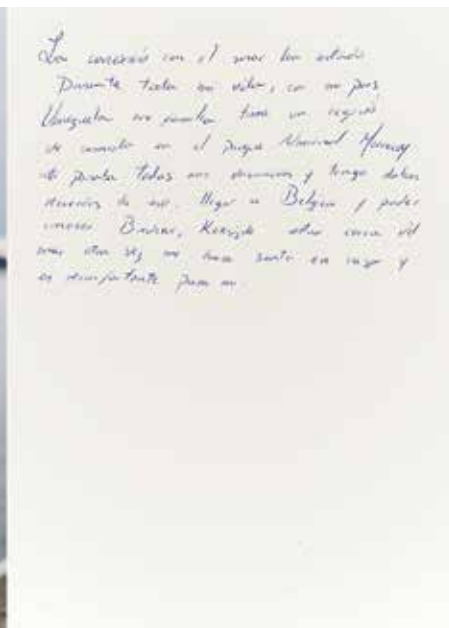 La conexión con el mar ha estado
Durante toda mi vida, en mi país
Venezuela mi familia tiene un negocio
de comida en el parque Nacional Morrocoy
allí pasaba todas mis vacaciones y tengo
de eso. llegar a Belgica y poder
conocer Bredene, Koksijde estar cerca del
mar otra vez me hace sentir en casa y
es reconfortante para mi.